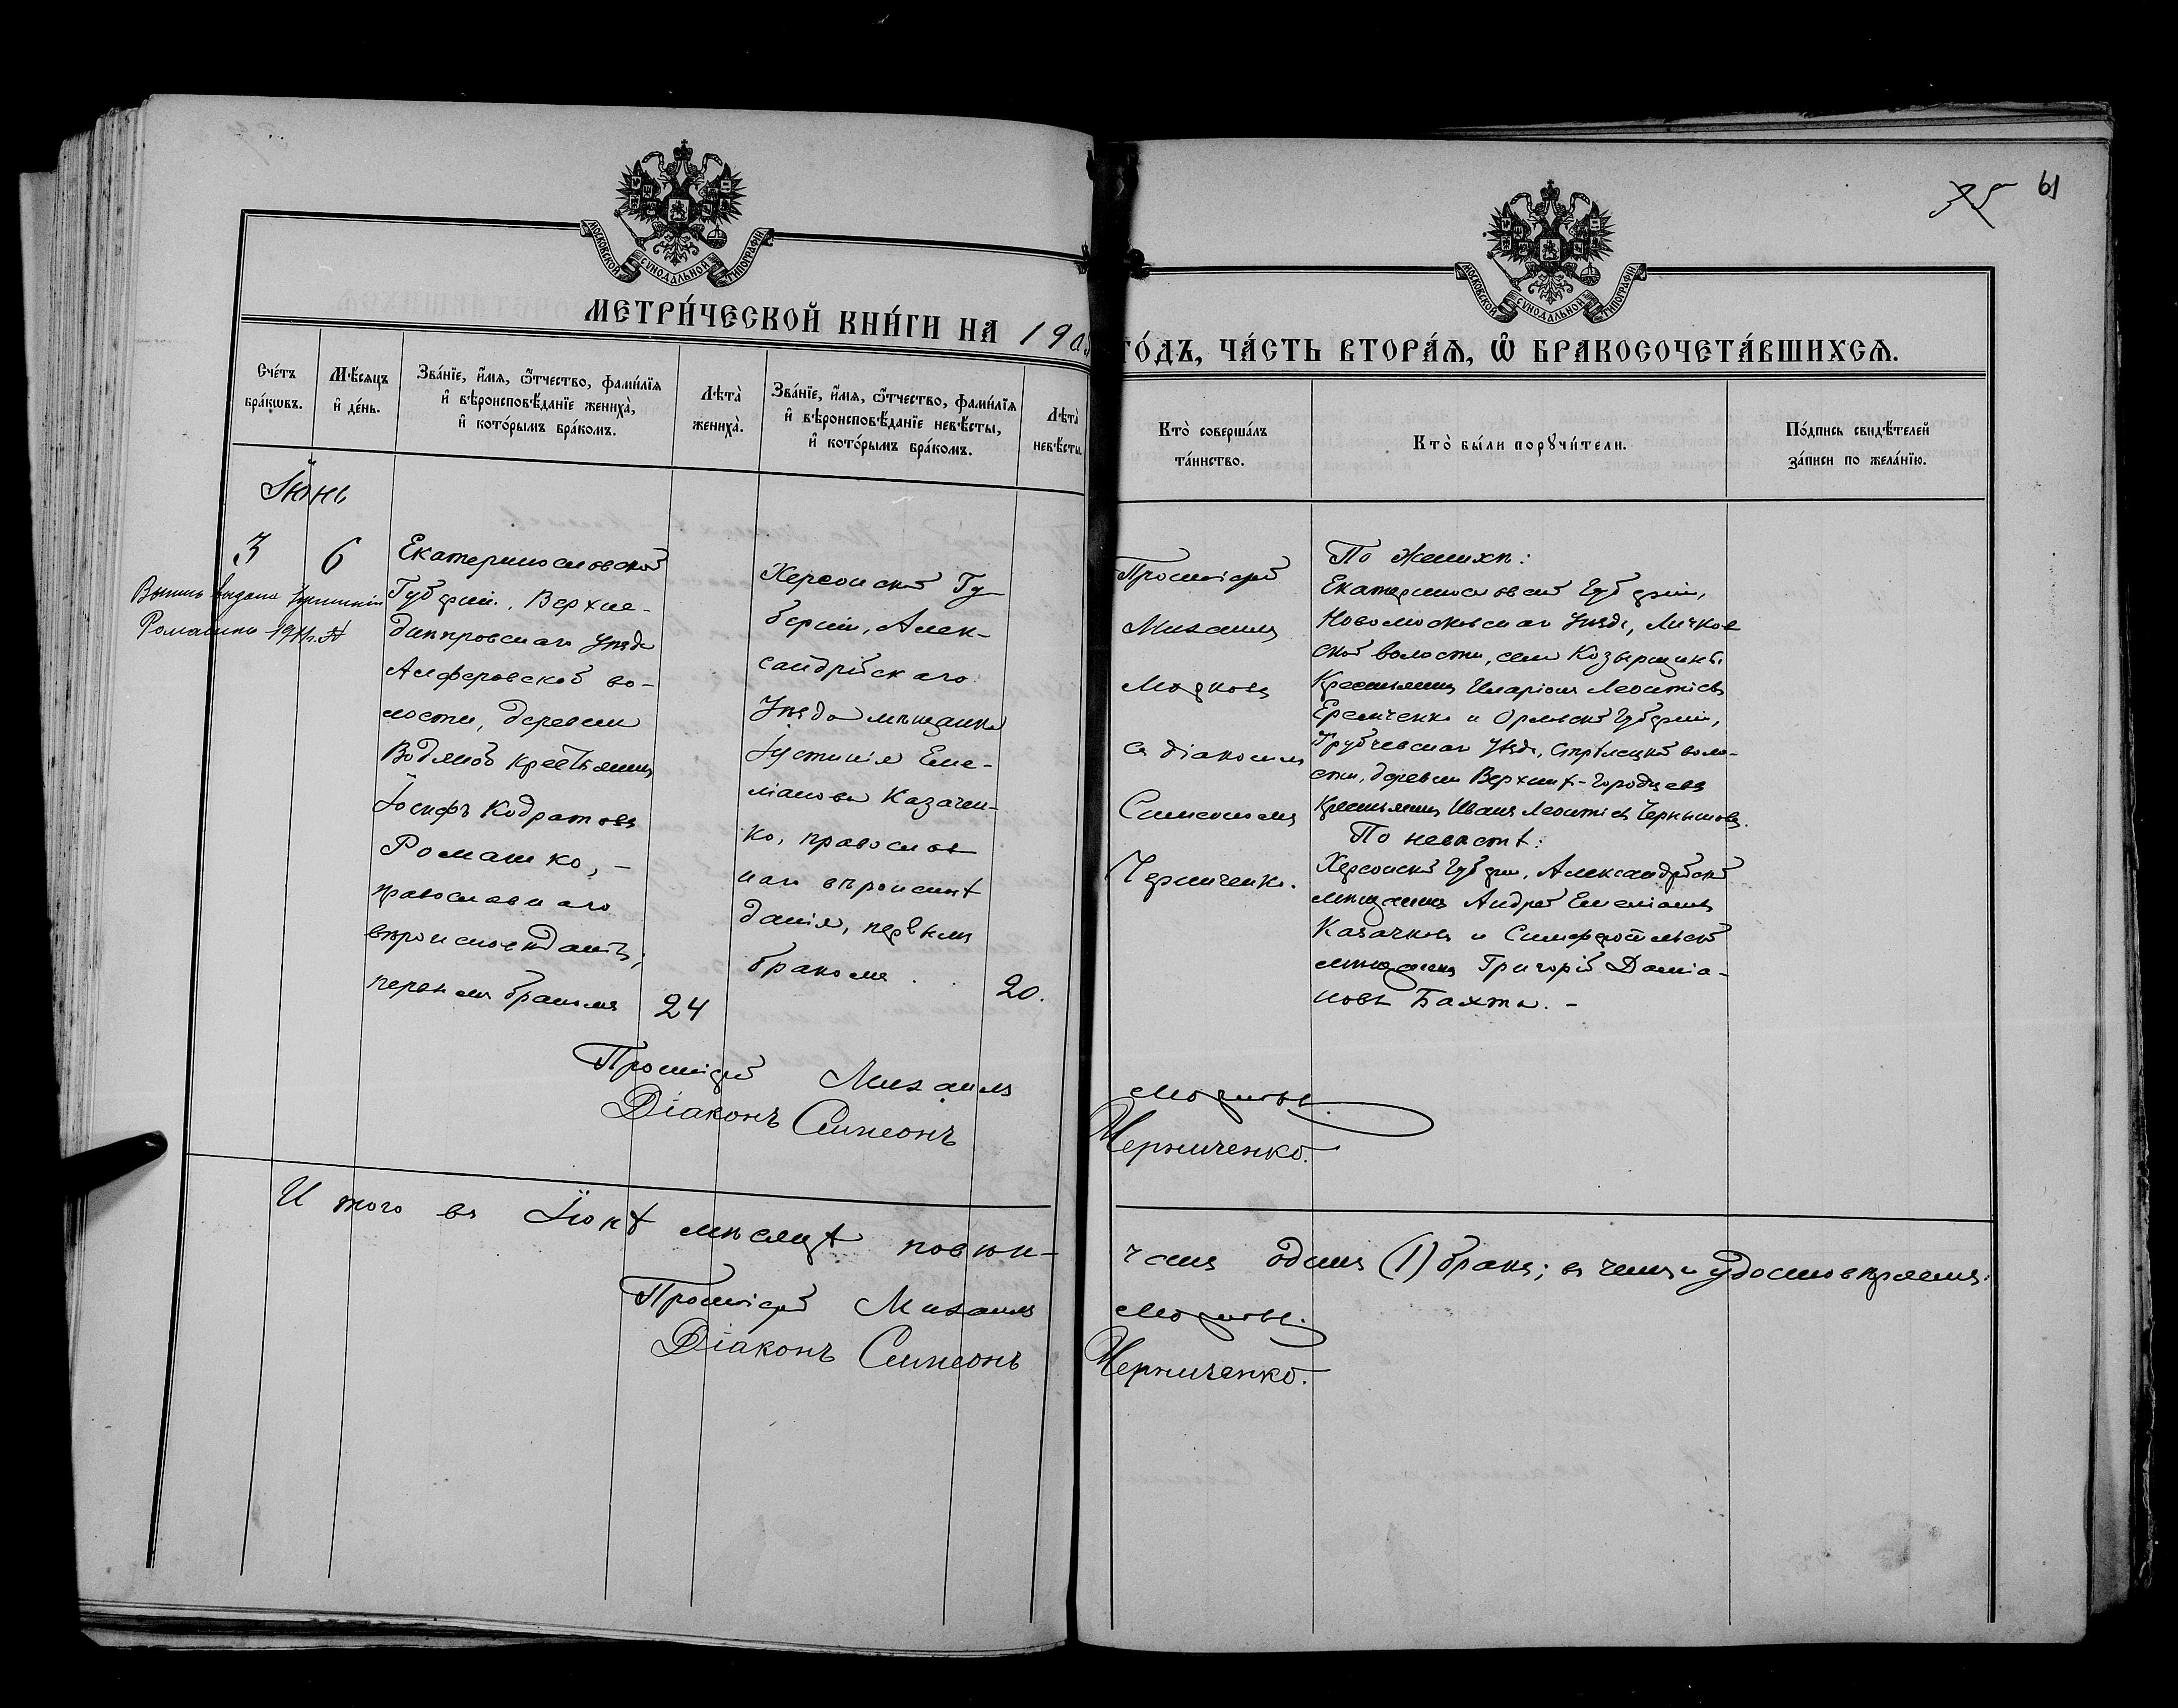 61
МОСКОВСКОЙ СѴНОДАЛЬНОЙ ТИПОГРАФІИ
МОСКОВСКОЙ СѴНОДАЛЬНОЙ ТИПОГРАФІИ
МЕТРИ́ЧЕСКОЙ КНИ́ГИ НА 190
ГО́ДЪ, ЧА́СТЬ ВТОРА́Ѧ, Ѽ БРАКОСОЧЕТА́ВШИХСѦ.
Сче́тъ бра́кѡвъ.
Мѣ́сяцъ и҆ де́нь.
Зва́нїе, и҆́мѧ, ѻ҆́тчество, фами́лїѧ и҆ вѣроисповѣ́данїе жениха̀, и҆ кото́рымъ бра́комъ.
Лѣта̀ жениха̀.
Зва́нїе, и҆́мѧ, ѻ҆́тчество, фами́лїѧ и҆ вѣроисповѣ́данїе невѣ́сты, и҆ кото́рымъ бра́комъ.
Лѣта̀ невѣ́сты.
Кто̀ соверша́лъ та́инство.
Кто̀ бы́ли порꙋчи́тели.
По́дпись свидѣ́телей за́писи по жела́нїю.
Іюнь
3
6
Екатеринославской
Губерніи, Верхне-
днѣпровскаго Уѣзда
Алферовской во-
лости, деревни
Водяной крестьянинъ
Іосифъ Кодратовъ
Ромашко, -
православнаго
вѣроисповѣданія,
первымъ бракомъ
24
Херсонской Гу-
берніи, Алек-
сандрійскаго
Уѣзда мѣщанка
Іустинія Еме-
ліанова Казачен-
ко, православ
наго вѣроисповѣ
данія, первымъ
бракомъ.
20.
Протоіерей
Михаилъ
съ діакономъ
Симеономъ
Черниченко.
По женихѣ:
Екатеринославской Губерніи,
Новомосковскаго Уѣзда, Личков
ской волости, села Козырщины
крестьянинъ Иларіонъ Леонтіевъ
Еремченко и Орловской Губерніи,
Трубчевскаго Уѣзда, Стрѣлецкой воло-
сти, деревни Верхнихъ-Городцевъ
крестьянинъ Иванъ Леонтіевъ Чернышовъ.
По невѣстѣ:
Херсонской Губерніи, Александрійской
мѣщанинъ Андрей Емеліановъ
Казачковъ и Симферопольской
мѣщанинъ Григорій Даміа-
новъ Бахта. -
Выпись выдана
Ромашко 1911 г.
Протоіерей Михаилъ
Діаконъ Симеонъ Черниченко.
Итого въ Іюнѣ мѣсяцѣ повѣн-
чанъ одинъ (1) бракъ; въ чемъ и удостовѣряемъ:
Протоіерей Михаилъ
Діаконъ Симеонъ Черниченко.